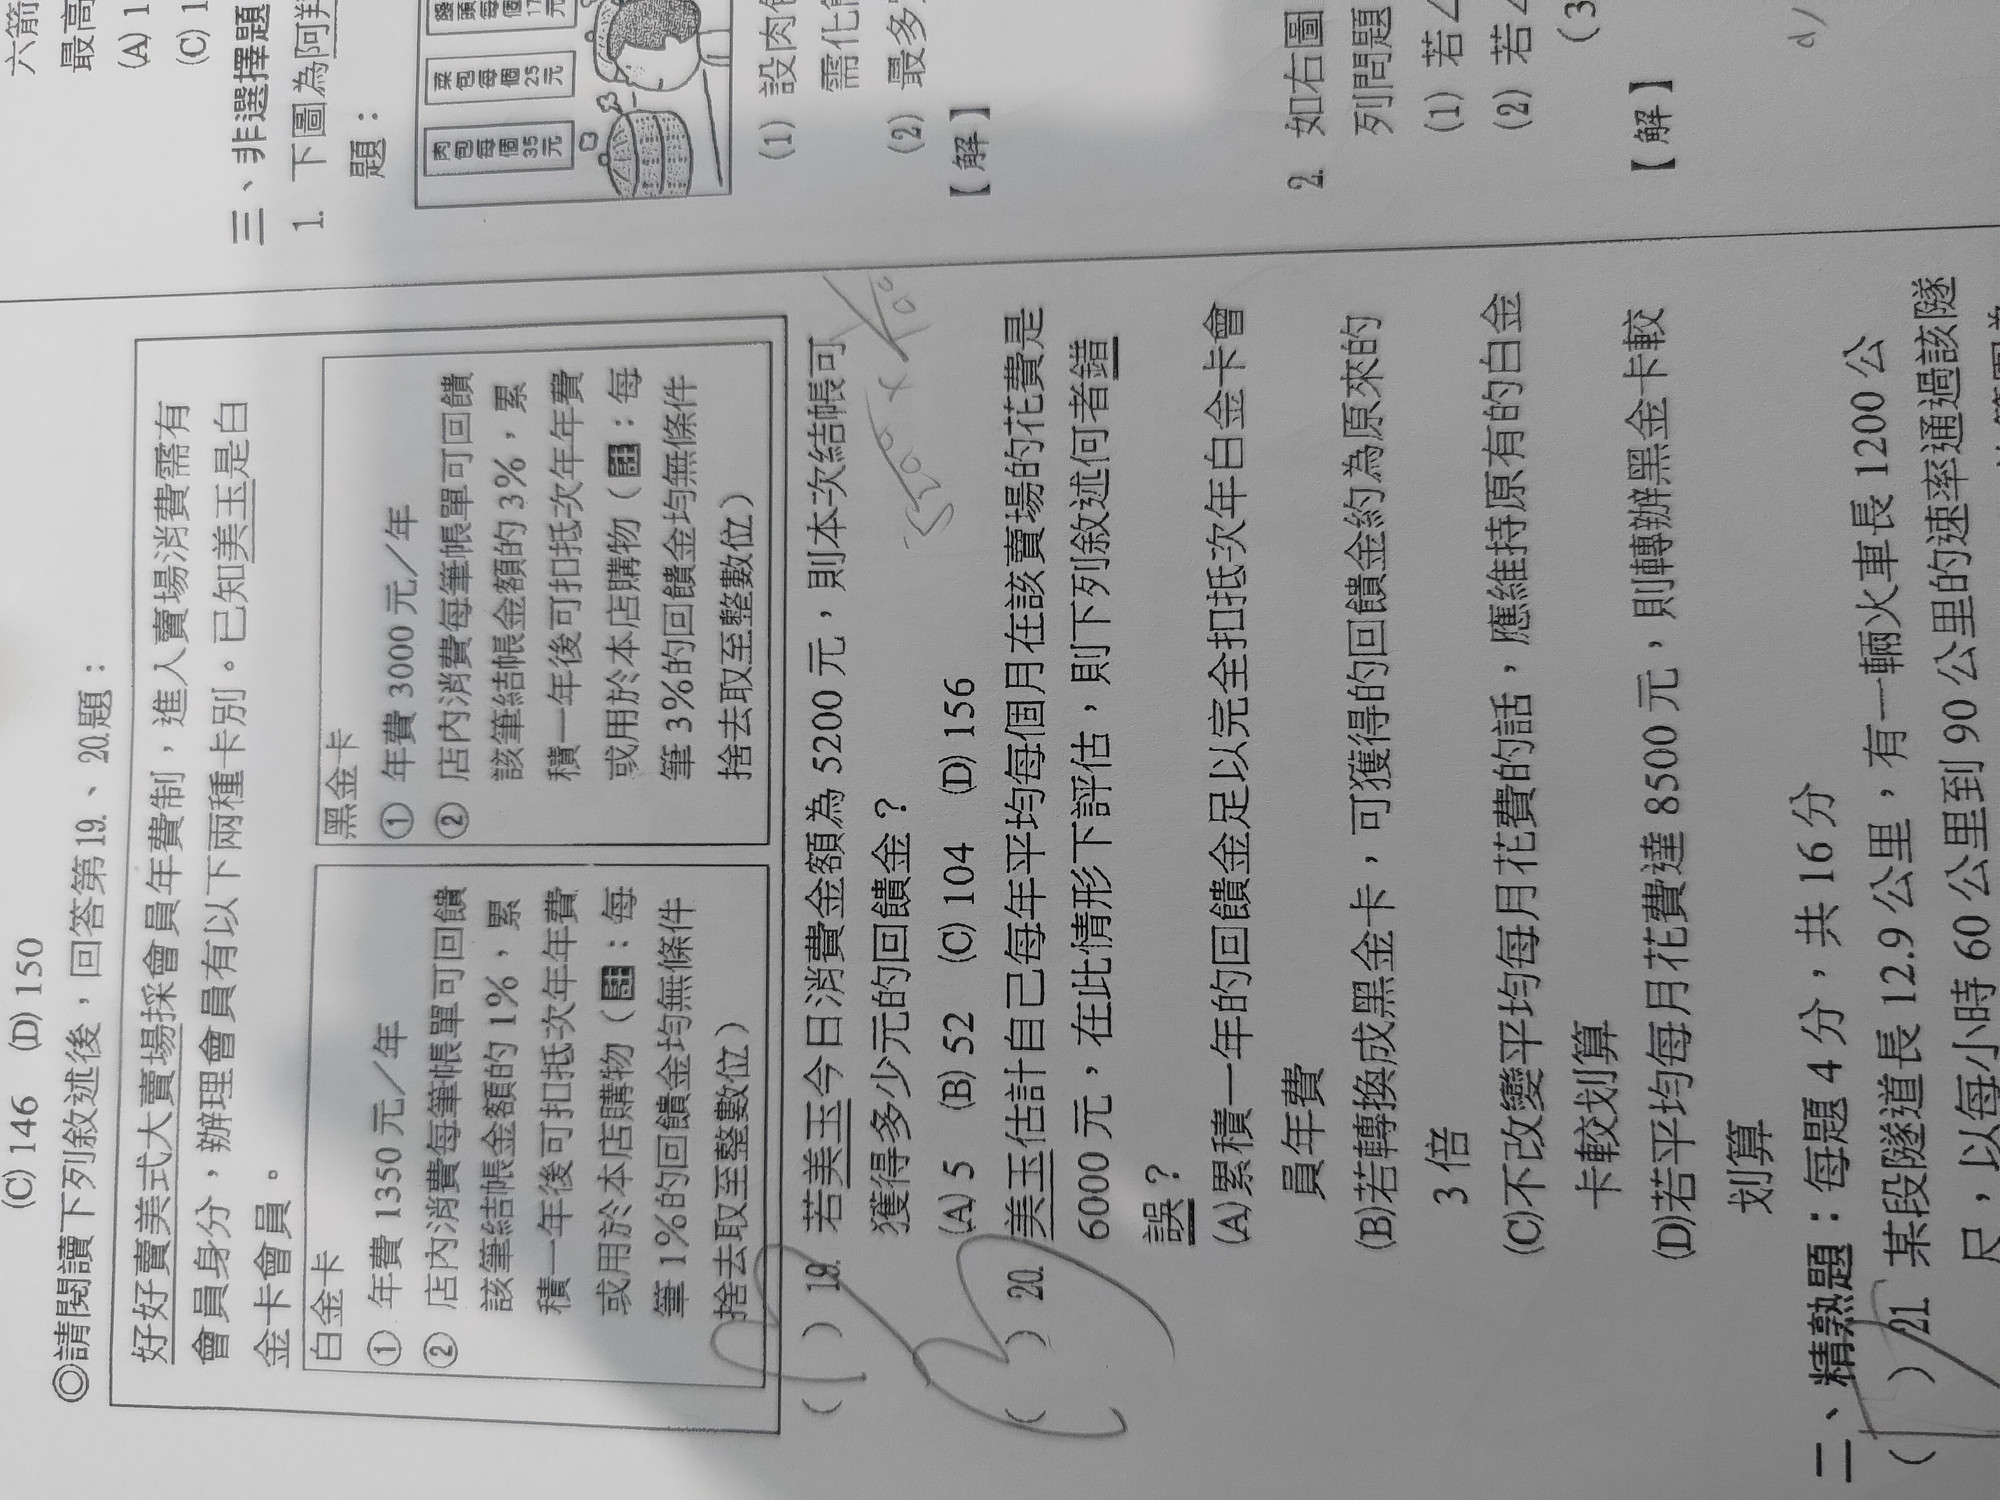 (C) 146 (D) 150
◎請閱讀下列敘述後，回答第19.、20.題：
好好賣美式大賣場採會員年費制，進入賣場消費需有
會員身分，辦理會員有以下兩種卡別。已知美玉是白
金卡會員。
白金卡
① 年費 1350 元／年
② 店內消費每筆帳單可回饋
該筆結帳金額的 1%，累
積一年後可扣抵次年年費
或用於本店購物（註：每
筆 1%的回饋金均無條件
捨去取至整數位）
黑金卡
① 年費 3000 元／年
② 店內消費每筆帳單可回饋
該筆結帳金額的 3%，累
積一年後可扣抵次年年費
或用於本店購物（註：每
筆 3%的回饋金均無條件
捨去取至整數位）
( ) 19. 若美玉今日消費金額為 5200 元，則本次結帳可
獲得多少元的回饋金？
(A) 5 (B) 52 (C) 104 (D) 156
( ) 20. 美玉估計自己每年平均每個月在該賣場的花費是
6000 元，在此情形下評估，則下列敘述何者錯
誤？
(A)累積一年的回饋金足以完全扣抵次年白金卡會
員年費
(B)若轉換成黑金卡，可獲得的回饋金約為原來的
3 倍
(C)不改變平均每月花費的話，應維持原有的白金
卡較划算
(D)若平均每月花費達 8500 元，則轉辦黑金卡較
划算
二、精熟題：每題 4 分，共 16 分
( ) 21. 某段隧道長 12.9 公里，有一輛火車長 1200 公
尺，以每小時 60 公里到 90 公里的速率通過該隧
六箭
最高
(A) 1
(C) 1
三、非選擇題
1. 下圖為阿
題：
肉包每個35元
菜包每個25元
(1) 設肉
需化
(2) 最多
【解】
2. 如右圖
列問題
(1) 若∠
(2) 若∠
(3
【解】